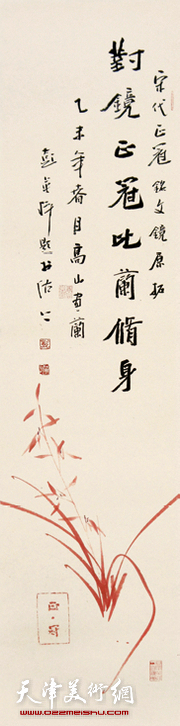 宋代正冠銘文鏡原拓
對鏡正冠比蘭脩身
乙未年春月高山画蘭
彭英科題於沽上
天津美術網
www.022meishu.com